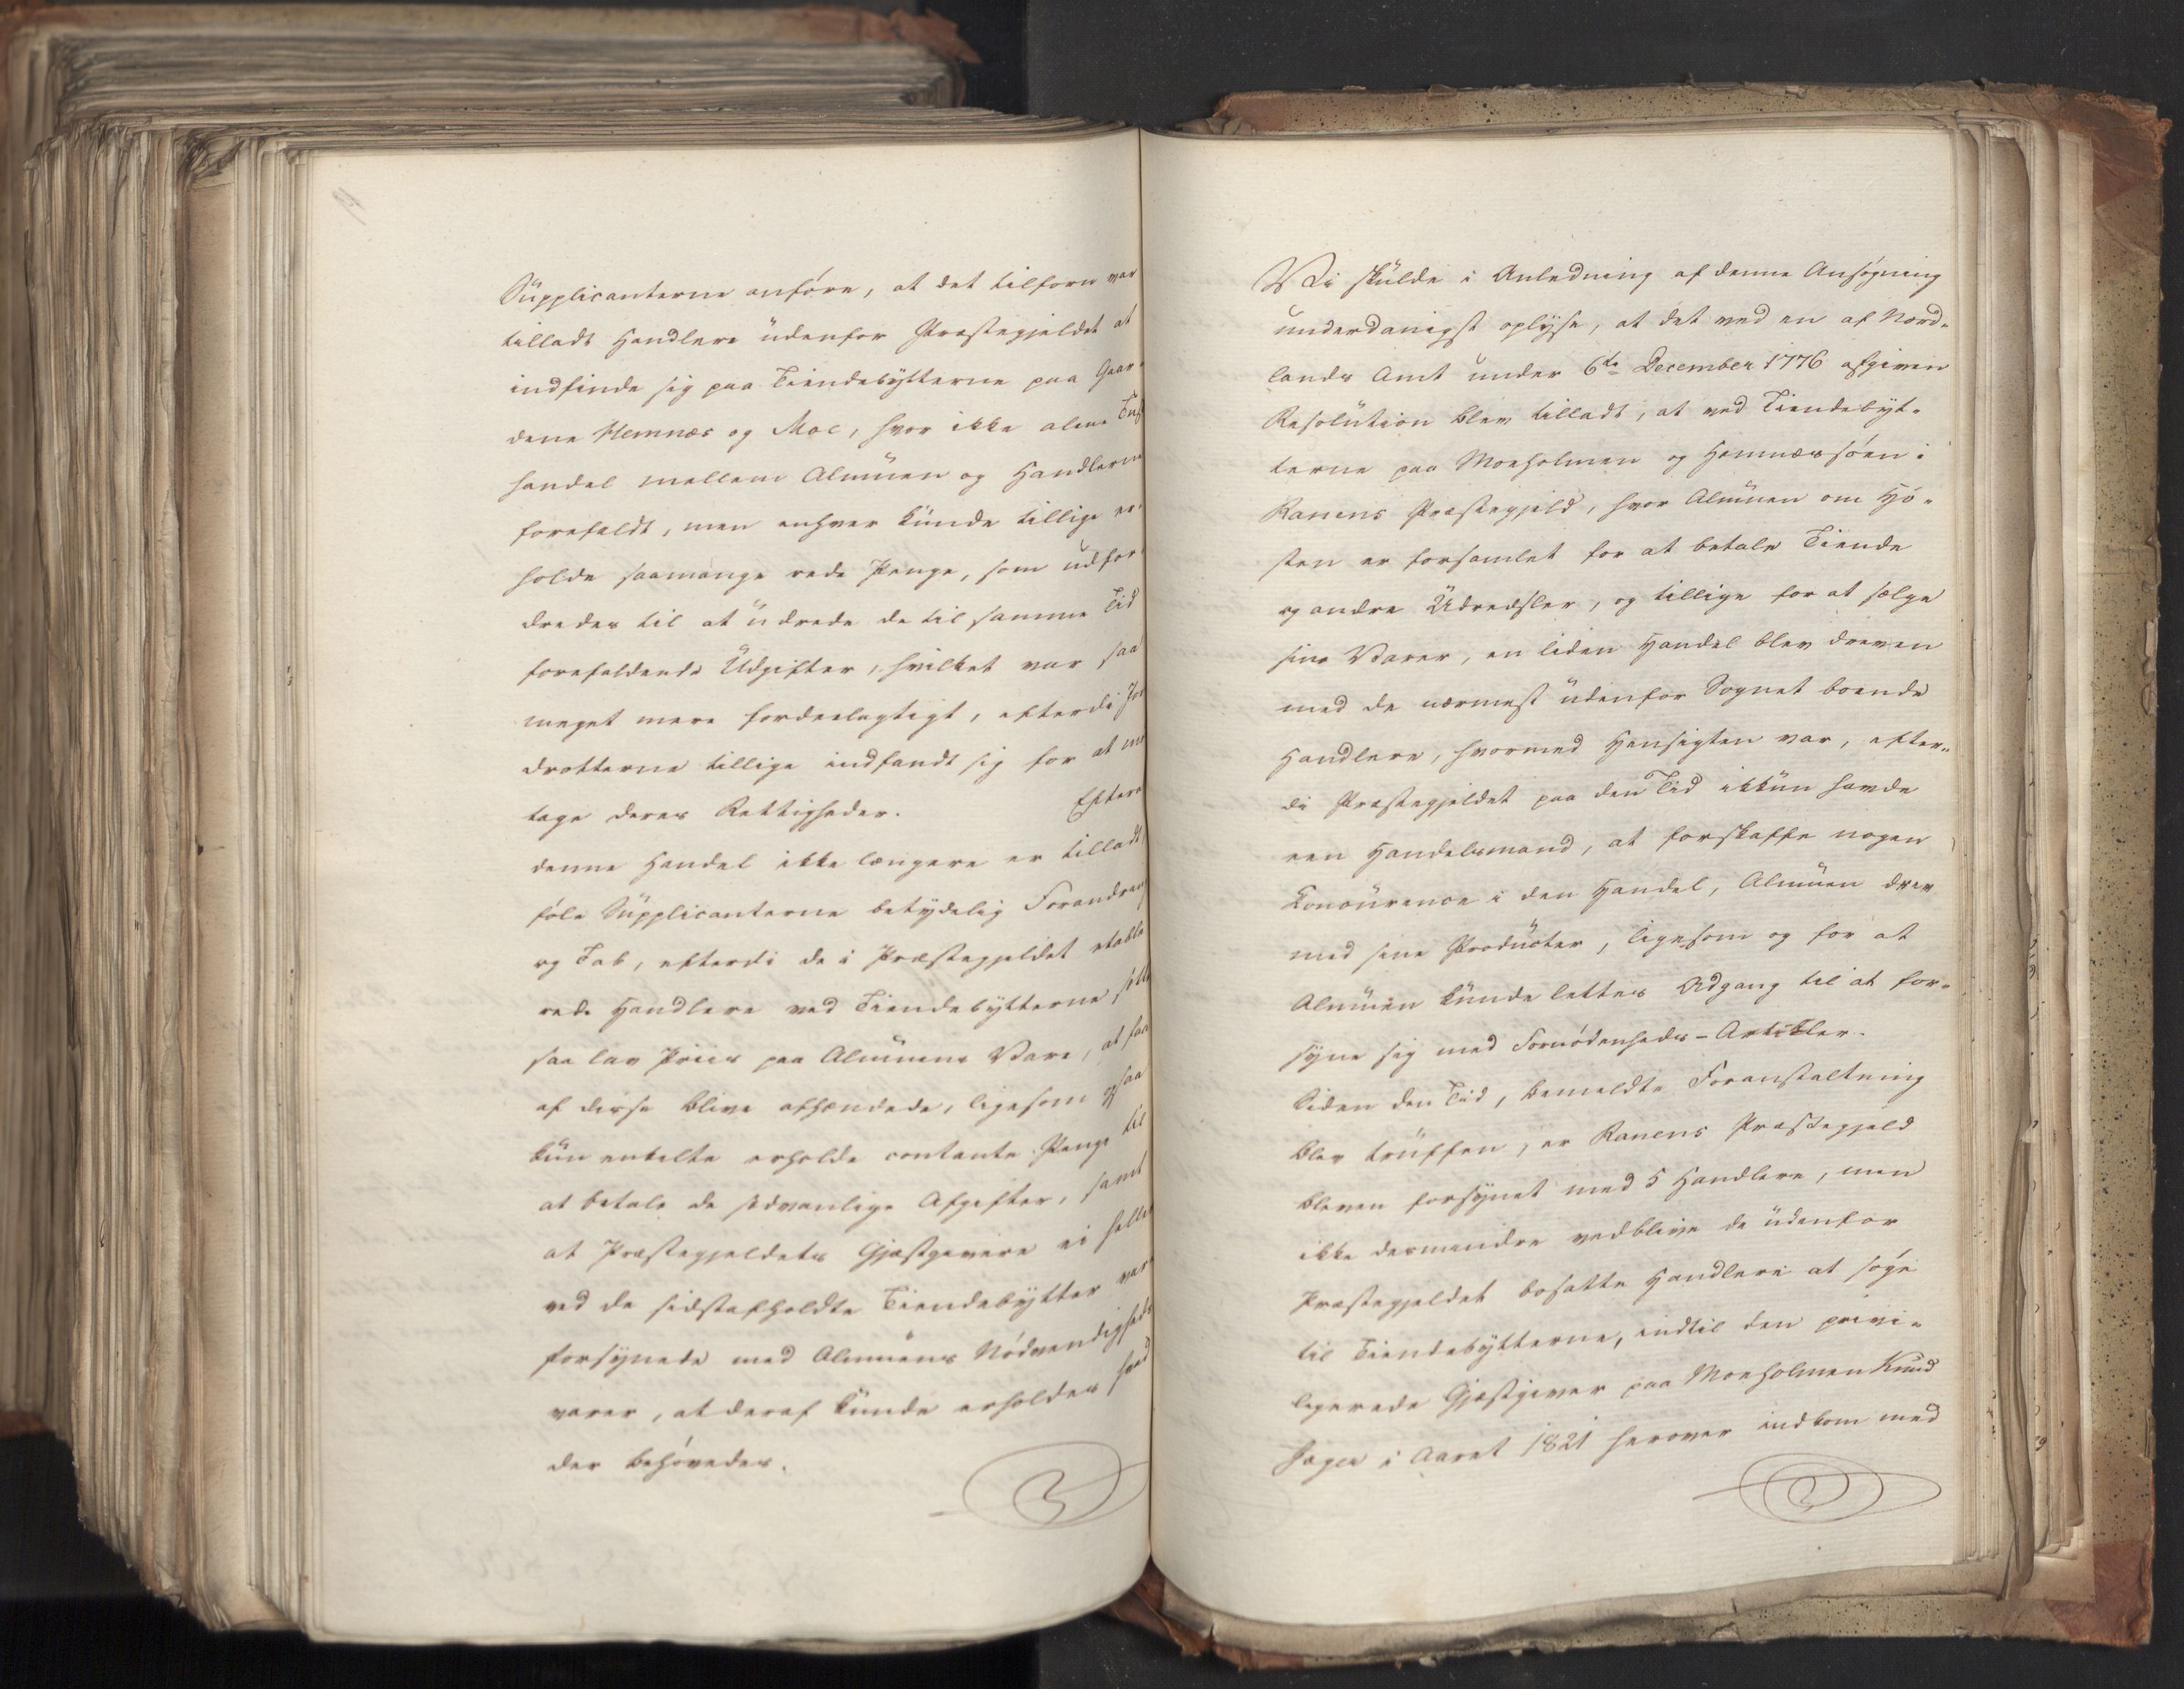 Supplicanterne anføre, at det tilforn var
tilladt Handlere udenfor Præstegjeldet at
indfinde sig paa Tiendebytterne paa Gaar-
dene Hemnæs og Moe, hvor ikke alene Tusk
handel mellem Almuen og Handlerne
forefaldt, men enhver kunde tillige er-
holde saamange rede Penge, som udfor-
dredes til at udrede de til samme Tid
forefaldende Udgifter, hvilket var saa
meget mere fordeelagtigt, efterdi Jor
drotterne tillige indfandt sig for at mod
tage deres Rettigheder. Efterat
denne Handel ikke længere er tilladt
føle Supplicanterne betydelig Forandring
og Tab, efterdi de i Præstegjeldet etable
rede Handlere ved Tiendebytterne sætte
saa lav Priis paa Almuens Vare, at faa
af disse blive afhændede, ligesom ogsaa
kun enkelte erholde contante Penge til
at betale de sedvanlige Afgifter, samt
at Præstegjeldets Gjæstgivere ei heller
ved de sidstafholdte Tiendebytter vare
forsynede med Almuens Nødvendigheds
varer, at deraf kunde erholdes hvad
der behøvedes.
Vi skulde i Anledning af denne Ansøgning
underdanigst oplyse, at det ved en af Nord-
lands Amt under 6te December 1776 afgiven
Resolution blev tilladt, at ved Tiendebyt-
terne paa Moeholmen og Hemnæssøen i
Ranens Præstegjeld, hvor Almuen om Hø-
sten er forsamlet for at betale Tiende
og andre Udredsler, og tillige for at sælge
sine Varer, en liden Handel blev dreven
med de nærmest udenfor Sognet boende
Handlere, hvormed Hensigten var, efter-
di Præstegjeldet paa den Tid ikkun havde
een Handelsmand, at forskaffe nogen
Concurence i den Handel, Almuen drev
med sine Producter, ligesom og for at
Almuen kunde lettes Adgang til at for-
syne sig med Fornødenheds-Artikler.
Siden den Tiid, bemeldte Foranstaltning
blev truffen, er Ranens Præstegjeld
bleven forsynet med 5 Handlere, men
ikke desmindre vedblive de udenfor
Præstegjeldet bosatte Handlere at søge
til Tiendebytterne, indtil den privi-
legerede Gjæstgiver paa Moeholmen Knud
i Aaret 1821 herover indkom med